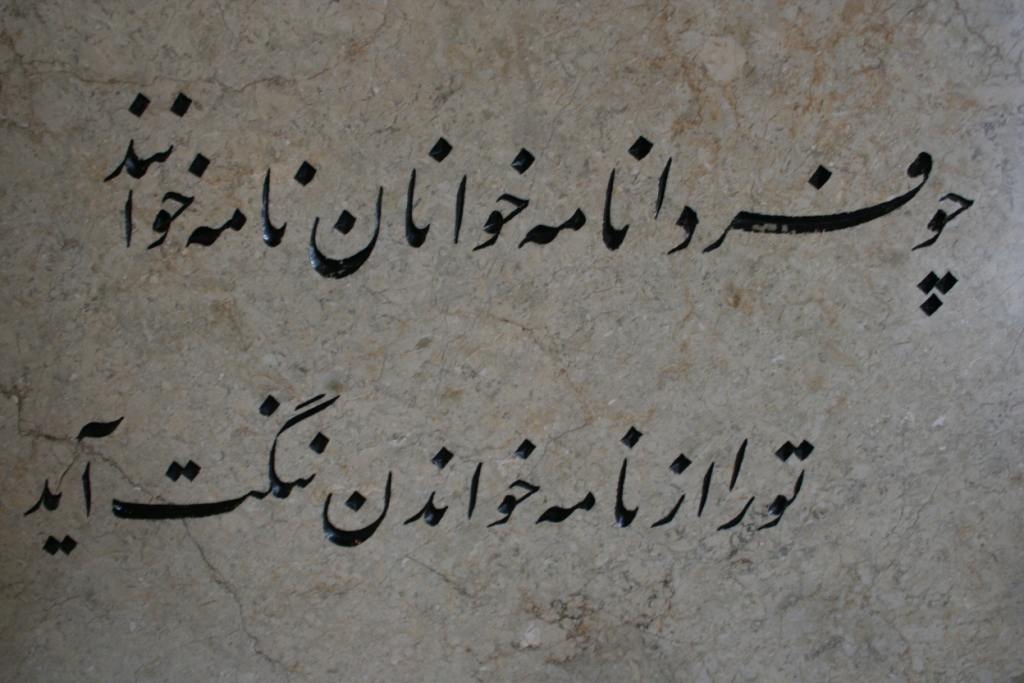 چو فردا نامه خوانان نامه خوانند
تو را از نامه خواندن ننگت آید